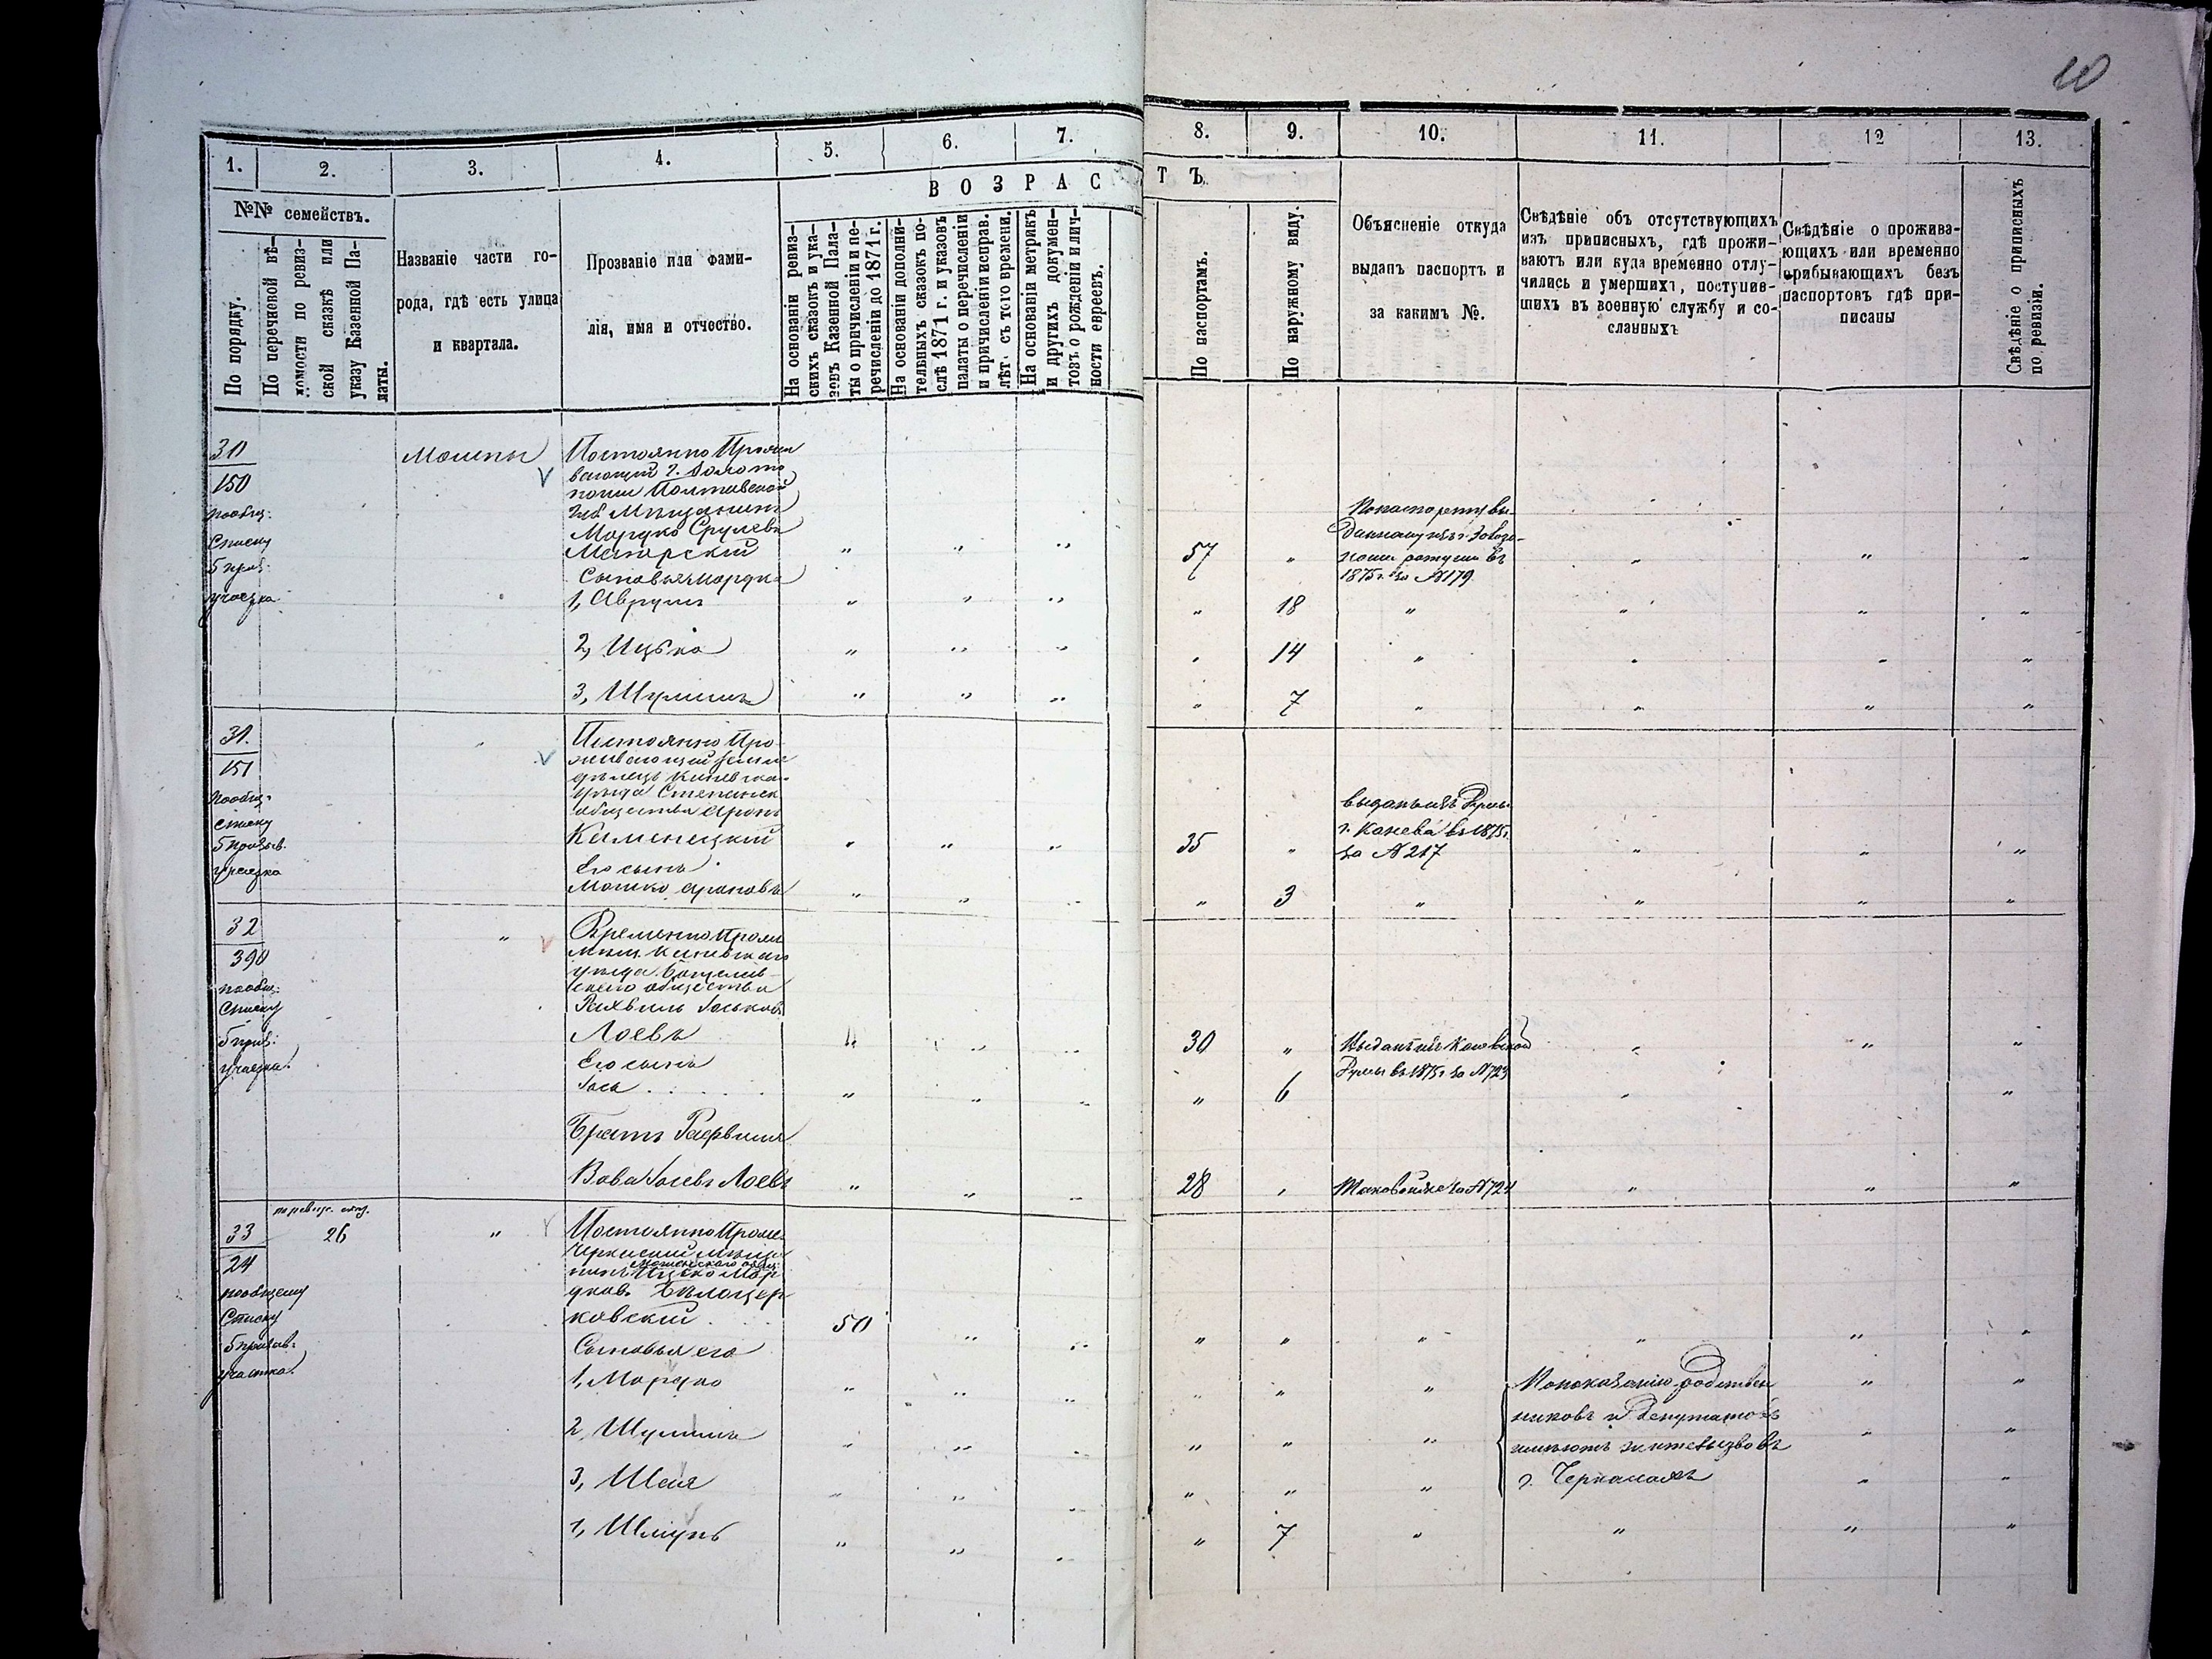 10
1.
2.
3.
4.
5.
6.
7.
8.
9.
10.
11.
12
13.
№№ семействъ.
ВОЗРАС
ТЪ
По порядку.
По перечневой вѣ-
домости по ревиз-
ской сказкѣ или
указу Казенной Па-
латы.
Названіе части го-
рода, гдѣ есть улица
и квартала.
Прозваніе или фами-
лія, имя и отчество.
На основаніи ревиз-
скихъ сказокъ и ука-
зовъ Казенной Пала-
ты о причисленіи и пе-
речисленіи до 1871 г.
На основаніи дополни-
тельныхъ сказокъ по-
слѣ 1871 г. и указовъ
палаты о перечисленіи
и причисленіи исправ.
лѣтъ съ того времени.
На основаніи метрикъ
и другихъ докумен-
товъ о рожденіи и лич-
ности евреевъ.
По паспортамъ.
По наружному виду.
Объясненіе откуда
выданъ паспортъ и
за какимъ №.
Свѣдѣніе объ отсутствующихъ
изъ приписныхъ, гдѣ прожи-
ваютъ или куда временно отлу-
чились и умершихъ, поступив-
шихъ въ военную службу и со-
сланныхъ
Свѣдѣніе о прожива-
ющихъ или временно
прибывающихъ безъ
паспортовъ гдѣ при-
писаны
Свѣдѣніе о приписныхъ
по ревизіи.
30
150
по общ:
списку
5 приз:
участка
Мошны
Постоянно Прожи
вающій г. Золото
ноши Полтавской
губ Мѣщанинъ
Мордко Срулевъ
57
По паспорту вы-
данному изъ г. Золото-
ноши ратуши въ
1875 г. за №179
Сыновья Мордка
1, Аврумъ
18
2, Ицько
14
3, Шулимъ
7
31.
151
по общ.
списку
5 призыв.
участка
Постоянно Про
живающій земле
дѣлецъ Каневска.
уѣзда Степанск
общества Аронъ
Каменецкій
35
выданъ изъ Думы
г. Канева въ 1875 г.
за №217
Его сынъ
Мошко Ароновъ
3
32
390
по общ:
списку
5 приз:
участка.
Временно Прожи
мѣщ. Каневскаго
уѣзда
скаго общества
Рахвиль Іоськовъ
Лоевъ
30
Выданъ изъ Каневской
Думы въ 1875 г за №723
Его сынъ
Іось
6
Братъ Рахвиля
Вова Іосевъ Лоевъ
28
Таковой же за №724
по ревиз. сказ.
33
26
24
по общему
списку
5 призыв:
участка.
Постоянно Прожи
Черкаскій мѣща
Мошенскаго общ:
нинъ Ицько Мор
дковъ Бѣлоцер
ковскій
50
Сыновья его
1, Мордко
2, Шулимъ
3, Шая
1, Шмунь
7
По показанію родствен
никовъ и Депутатовъ
имѣютъ жительство въ
г. Черкасахъ